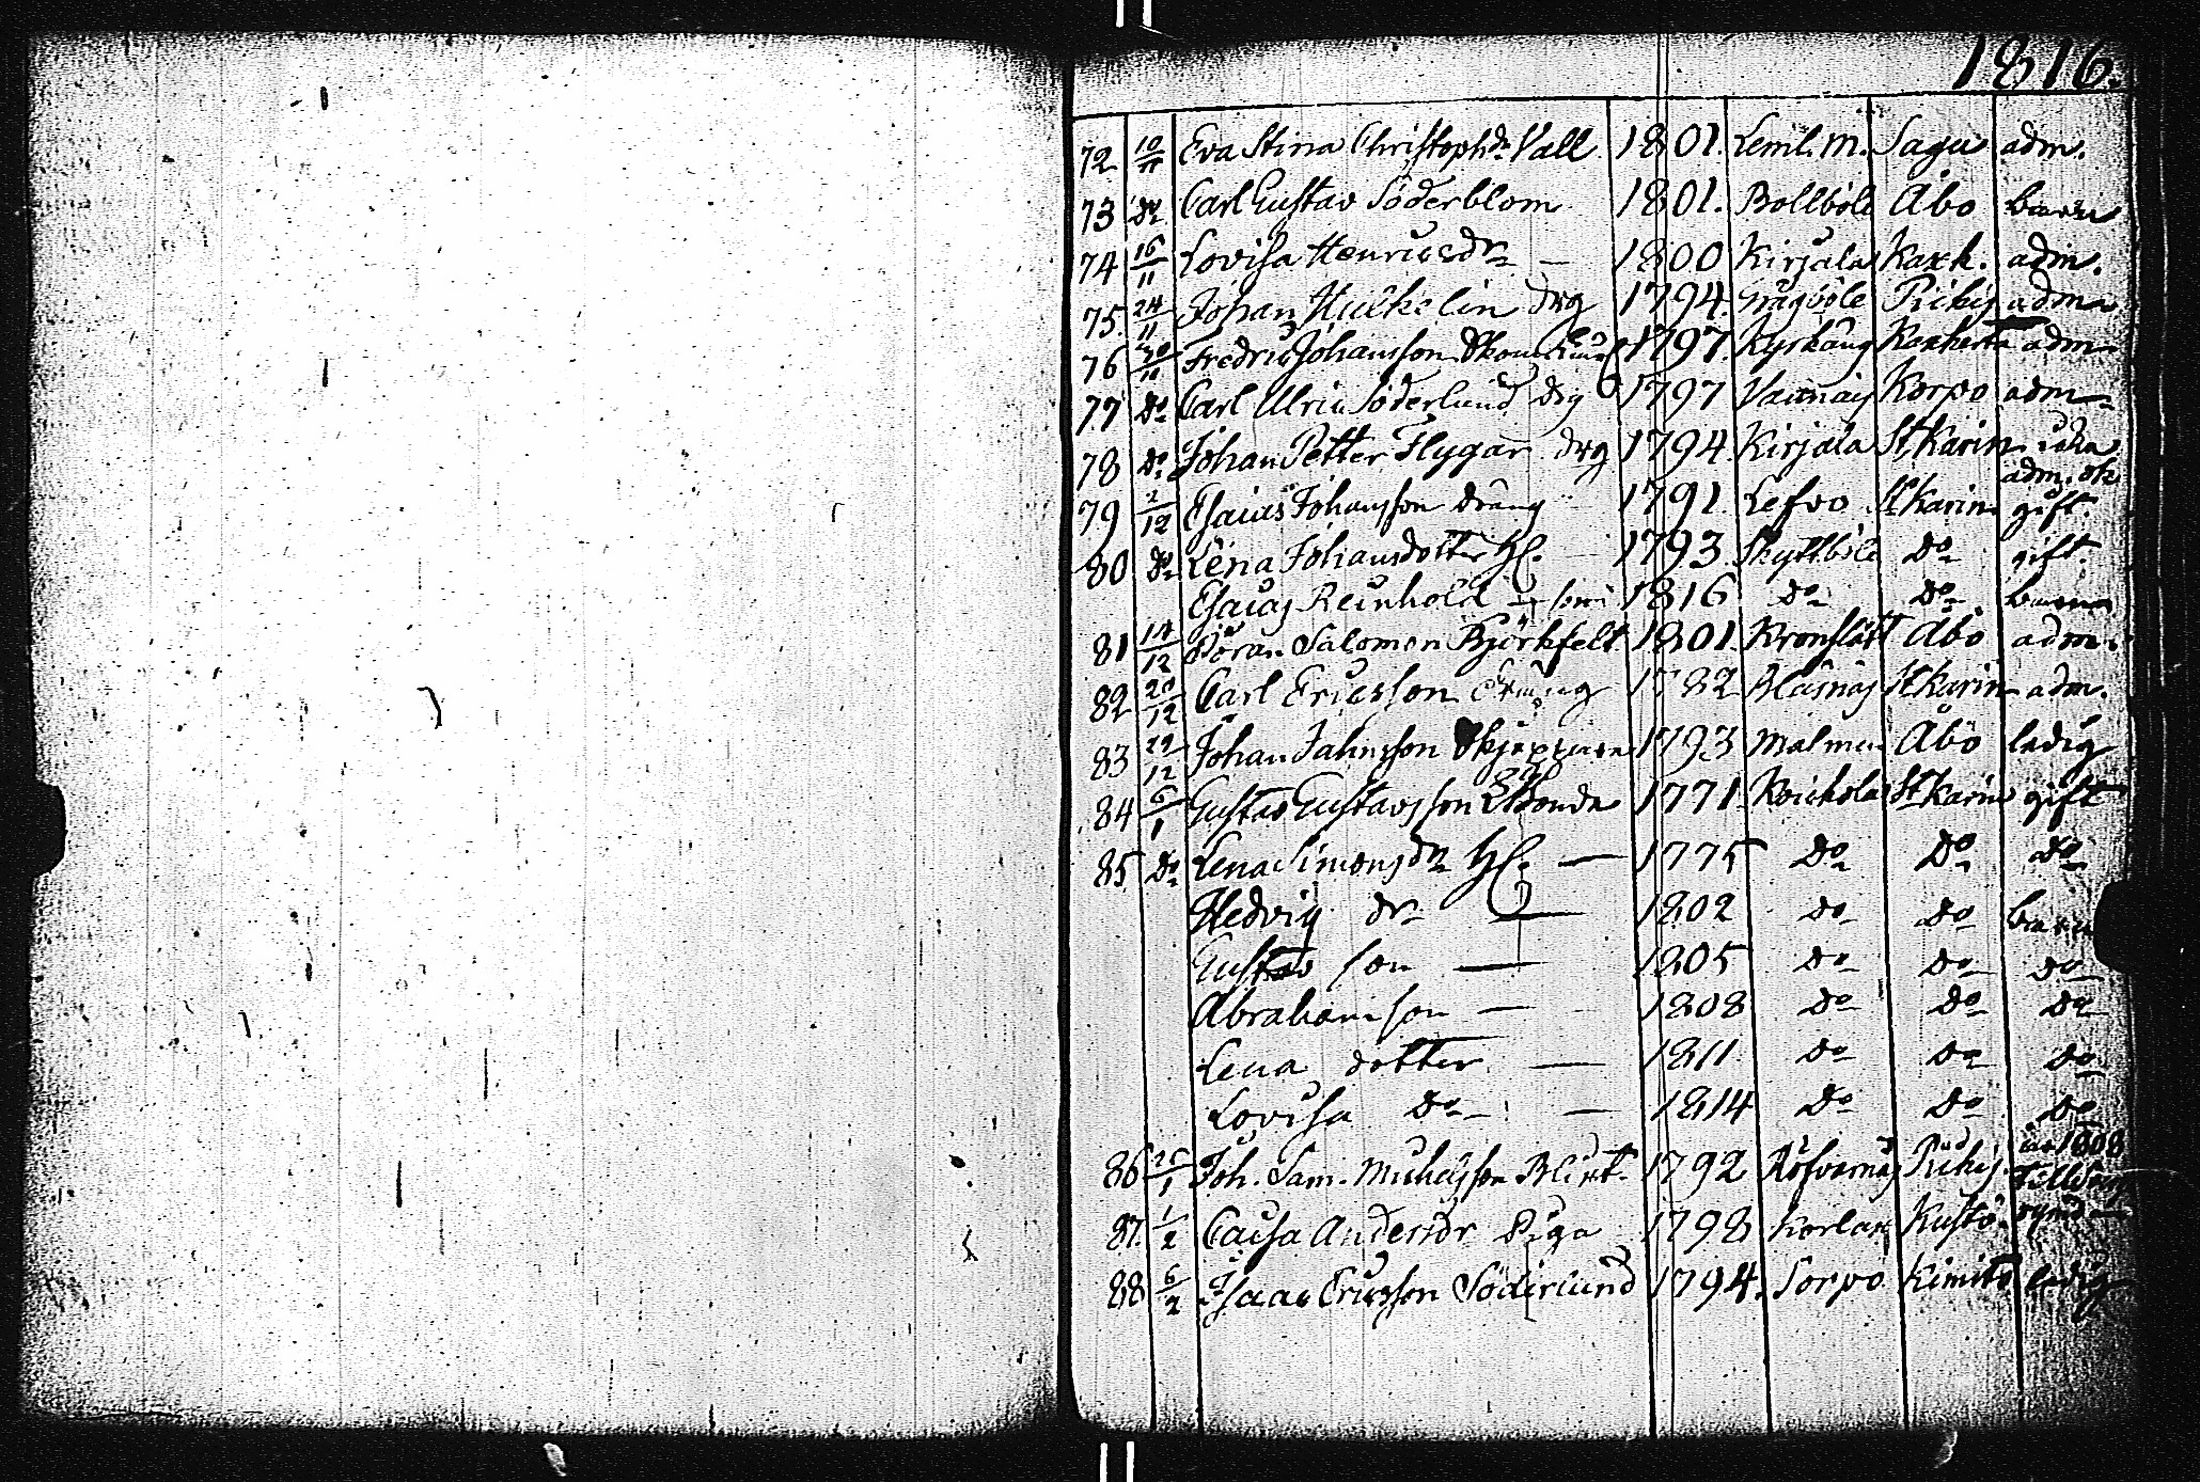 1816.
72 10/11 Eva Stina Christophdr Vall 1801. Leml. M. Sagu adm.
73 do Carl Gustav Söderblom 1801. Bollböle Åbo barn
74 16/11 Lovisa Henricsdr — 1800 Kirjala Karh. adm.
75. 24/11 Johan Huckelin drg 1794. Pickis adm.
76 30/11 Fredric Johansson 1797. adm
77 do Carl Ulric Söderlund drg 1797 Korpo adm
78 do Johan Petter Flygar drg 1794. Kirjala St Karin
adm. ok
79 2/12 Esaias Johansson dräng 1791. Lefvo St Karin gift.
80 do Lena Johansdotter H. 1793. Skyttböle do gift.
Esaias Reinhold — son 1816 do do barn
81 14/12 Göran Salomon Björkfelt 1801. Åbo adm.
82 20/12 Carl Ericsson dräng 1782 Bläsnäs St Karin adm.
83 29/12 Johan Johansson 1793 Malmen Åbo ledig
84 6/1 Gustav Gustavsson Bonde 1771. St Karin gift
85. do Lena Simonsdr H. — 1775 do do do
Hedvig dr — 1802 do do barn
Gustav son — 1805 do do do
Abraham son — 1808 do do do
Lena dotter — 1811 do do do
Lovisa do — 1814 do do do
86 25/1 Joh. Sam. Michelsson 1792 Röfvarnäs Pickis 1808
87. 1/2 Caisa Andersdr Piga 1798 Kustö
88 6/2 Isaac Ericsson Söderlund 1794. Sorpo Kimito ledig